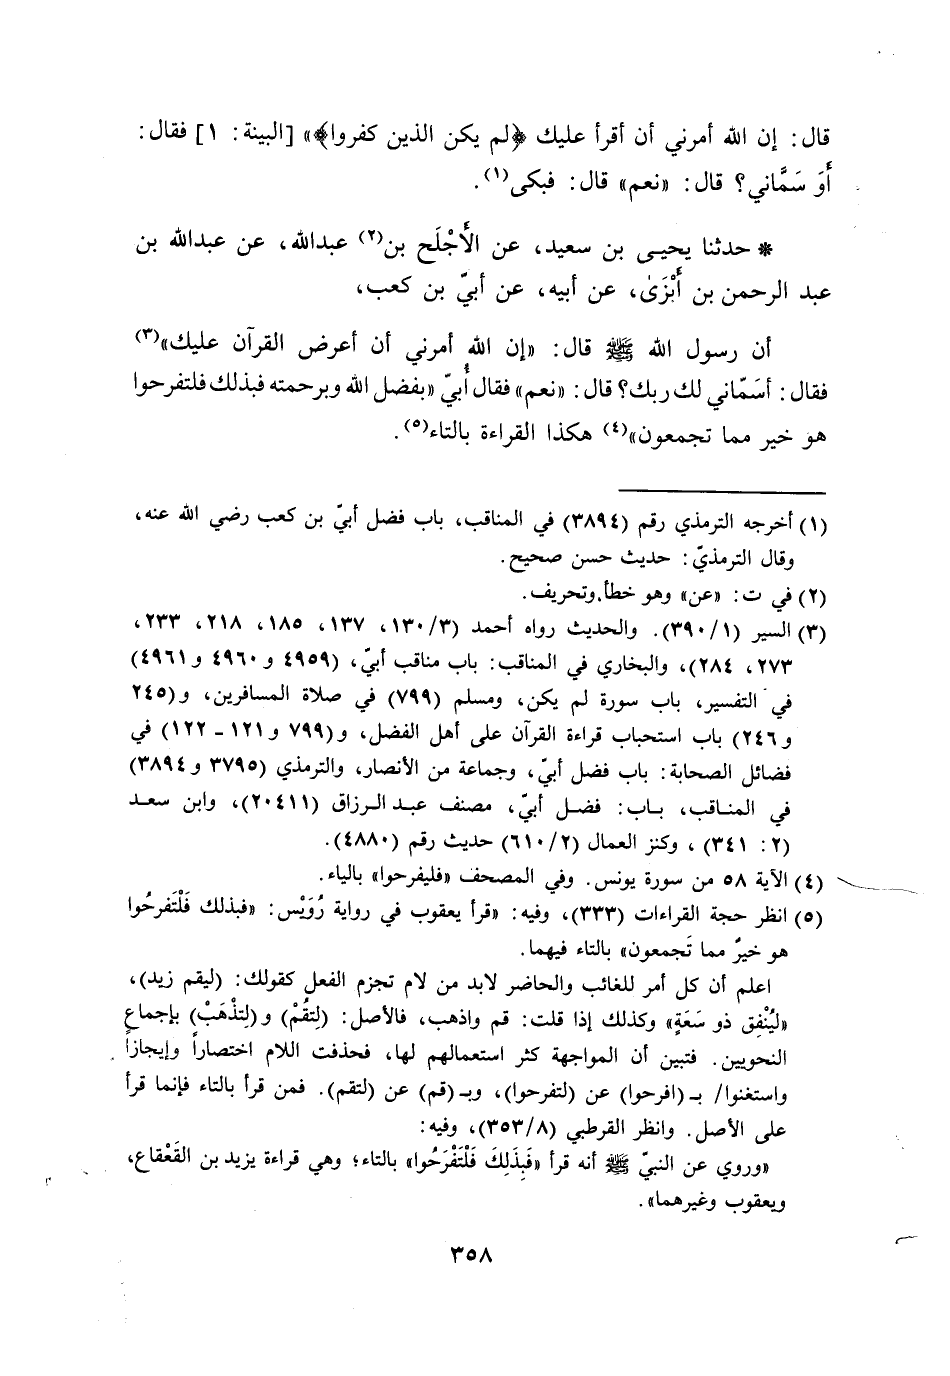 قال: إن الله أمرني أن أقرأ عليك ﴿لم يكن الذين كفروا﴾» [البينة: ١] فقال:
أَوَ سَمَّاني؟ قال: «نعم» قال: فبكى(١).
* حدثنا يحيى بن سعيد، عن الأَجْلَح بن(٢) عبدالله، عن عبدالله بن
عبد الرحمن بن أَبْزَىٰ، عن أبيه، عن أبيّ بن كعب،
أن رسول الله ﷺ قال: «إن الله أمرني أن أعرض القرآن عليك»(٣)
فقال: أسَمّاني لك ربك؟ قال: «نعم» فقال أُبيّ «بفضل الله وبرحمته فبذلك فلتفرحوا
هو خير مما تجمعون»(٤) هكذا القراءة بالتاء(٥).
(١) أخرجه الترمذي رقم (٣٨٩٤) في المناقب، باب فضل أبيّ بن كعب رضي الله عنه،
وقال الترمذيّ: حديث حسن صحيح.
(٢) في ت: «عن» وهو خطأ وتحريف.
(٣) السير (١/ ٣٩٠). والحديث رواه أحمد (٣/ ١٣٠، ١٣٧، ١٨٥، ٢١٨، ٢٣٣،
٢٧٣، ٢٨٤)، والبخاري في المناقب: باب مناقب أبيّ، (٤٩٥٩ و٤٩٦٠ و٤٩٦١)
في التفسير، باب سورة لم يكن، ومسلم (٧٩٩) في صلاة المسافرين، و(٢٤٥
و٢٤٦) باب استحباب قراءة القرآن على أهل الفضل، و(٧٩٩ و١٢١ - ١٢٢) في
فضائل الصحابة: باب فضل أبيّ، وجماعة من الأنصار، والترمذي (٣٧٩٥ و٣٨٩٤)
في المناقب، باب: فضل أبيّ، مصنف عبد الرزاق (٢٠٤١١)، وابن سعد
(٢: ٣٤١) ، وكنز العمال (٢/ ٦١٠) حديث رقم (٤٨٨٠).
(٤) الآية ٥٨ من سورة يونس. وفي المصحف «فليفرحوا» بالياء.
(٥) انظر حجة القراءات (٣٣٣)، وفيه: «قرأ يعقوب في رواية رُوَيْس: «فبذلك فَلْتَفرحُوا
هو خيرٌ مما تَجمعون» بالتاء فيهما.
اعلم أن كل أمر للغائب والحاضر لابد من لام تجزم الفعل كقولك: (ليقم زيد)،
«ليُنْفِق ذو سَعَةٍ» وكذلك إذا قلت: قم واذهب، فالأصل: (لِتقُمْ) و(لِتذْهَبْ) بإجماع
النحويين. فتبين أن المواجهة كثر استعمالهم لها، فحذفت اللام اختصاراً وإيجازاً
واستغنوا/ بـ (افرحوا) عن (لتفرحوا)، وبـ (قم) عن (لتقم). فمن قرأ بالتاء فإنما قرأ
على الأصل. وانظر القرطبي (٨/ ٣٥٣)، وفيه:
«وروي عن النبيّ ﷺ أنه قرأ «فَبِذَلِكَ فَلْتَفْرَحُوا» بالتاء؛ وهي قراءة يزيد بن القَعْقاع،
ويعقوب وغيرهما».
٣٥٨